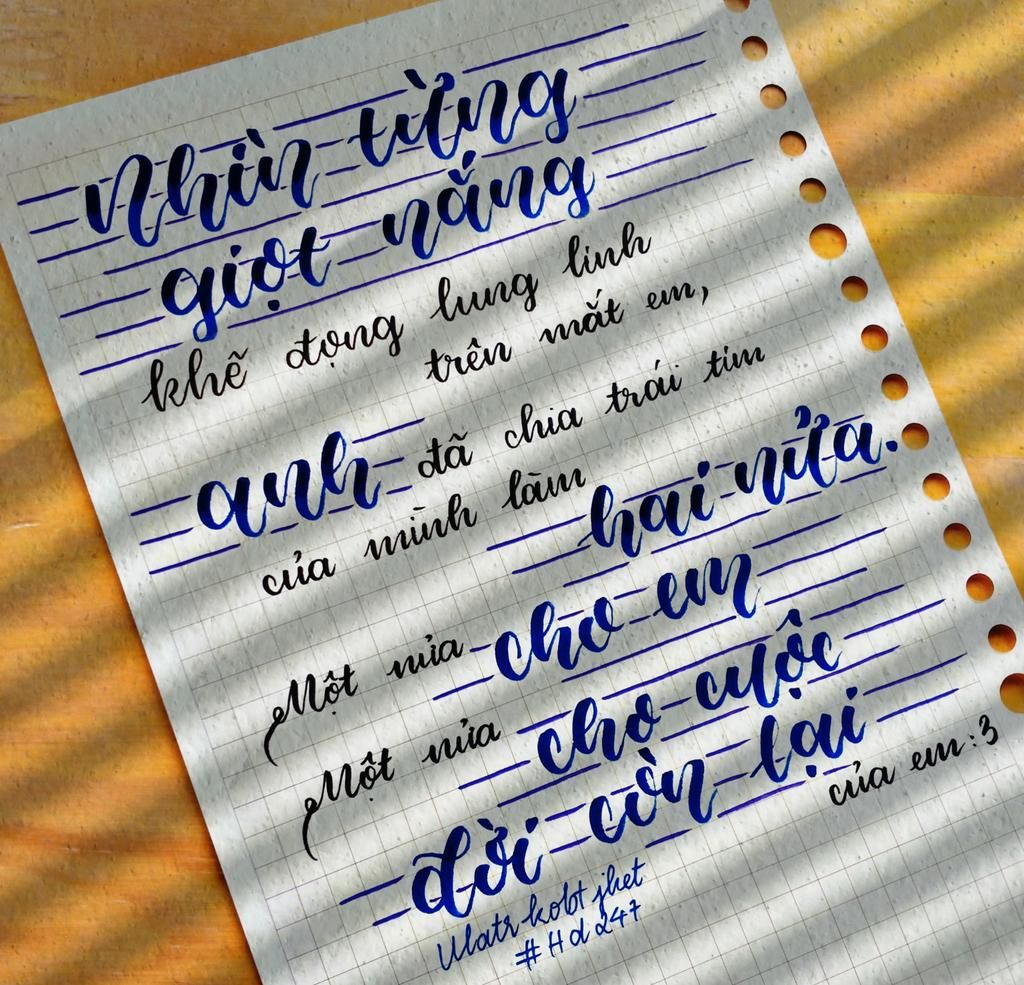 Nhìn từng
giọt nắng
khẽ đọng lung linh
trên mắt em,
anh đã chia trái tim
của mình làm hai nửa.
Một nửa cho em
Một nửa cho cuộc
đời còn lại
của em:3
#Hd247